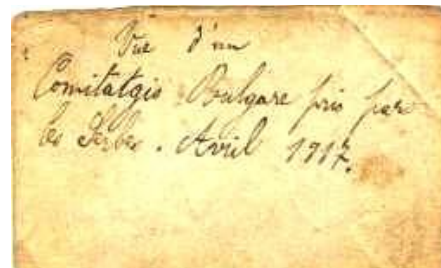 Vue d'un
Comitatgis Bulgare pris par
les Serbes. Avril 1917.